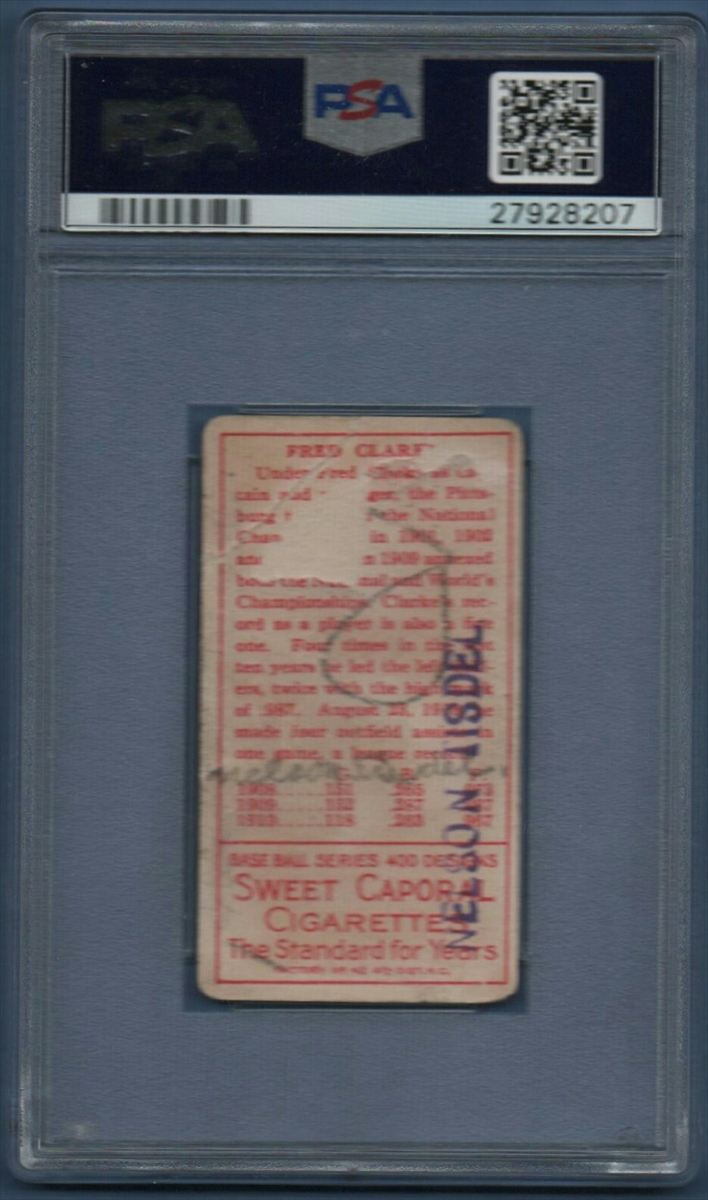 PSA
PSA
27928207
FRED CLARK
Under Fred as
tain and ger, the Pitts-
burg the National
Cham in 1902, 1903
and n 1909 annexed
both the National and World's
Championships. Clarke's rec-
ord as a player is also a fine
one. Four times in the
ten years he led the left
ers, twice with the high
of .987. August 23, 19
made four outfield
one game, a league
nelson tisdel.
1908......151 .265
1909......152 .287
1910......118 .263
BASE BALL SERIES 400 DESIGNS
SWEET CAPORAL
CIGARETTE
The Standard for Years
FACTORY Nº 42 4TH DIST. N.C.
NELSON TISDEL